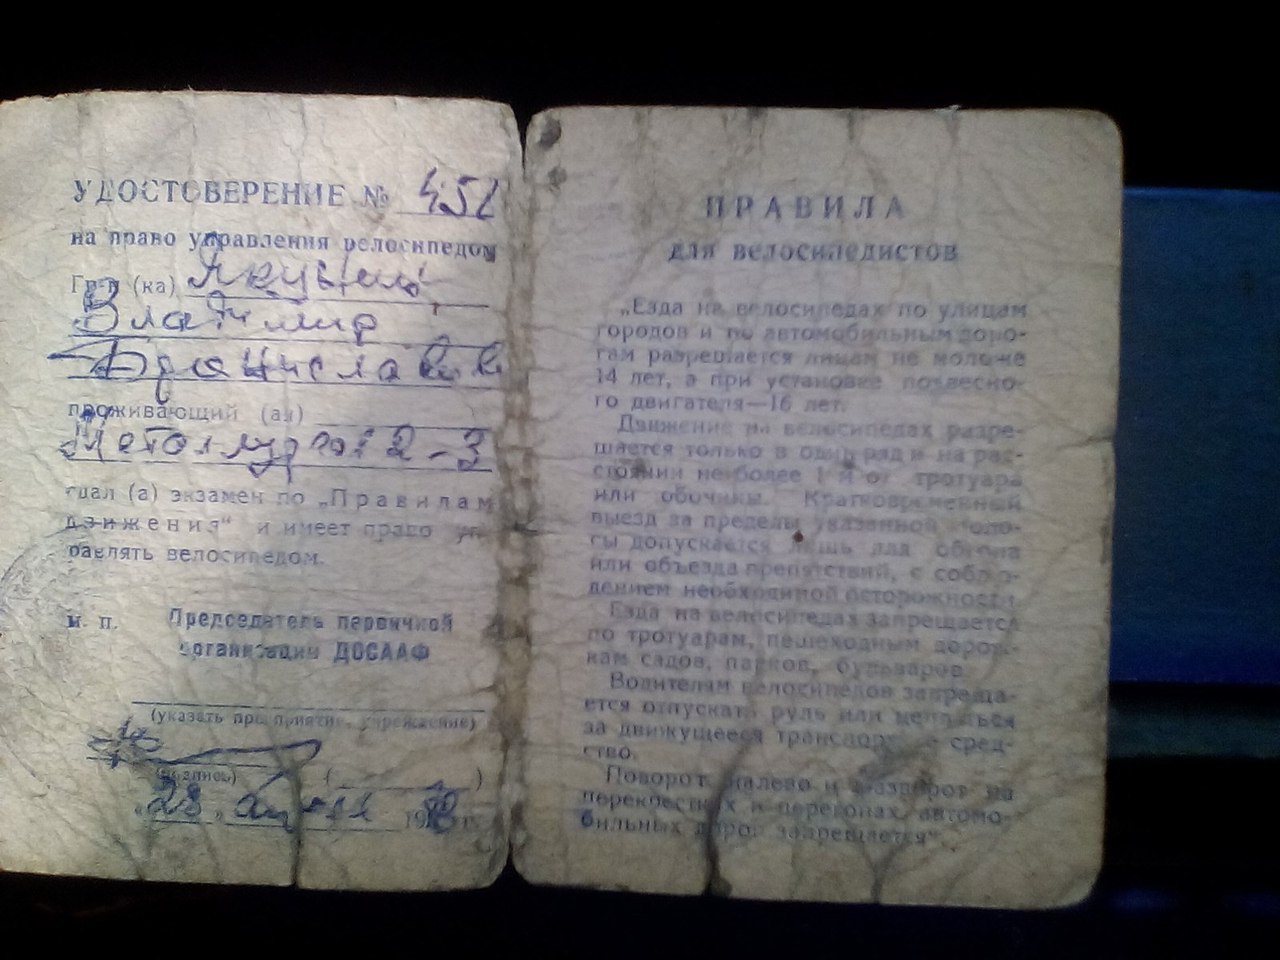 УДОСТОВЕРЕНИЕ № 451
на право управления велосипедом
Гр-н (ка)
Владимир
Брониславович
проживающий (ая)
Металлургов 2-3
сдал (а) экзамен по „Правилам
движения“ и имеет право уп-
равлять велосипедом.
м. п. Председатель первичной
организации ДОСААФ
(указать предприятие, учреждение)
(подпись) ( )
„28„ 19 г.
ПРАВИЛА
для велосипедистов
„Езда на велосипедах по улицам
городов и по автомобильным доро-
гам разрешается лицам не моложе
14 лет, а при установке подвесно-
го двигателя—16 лет.
Движение на велосипедах разре-
шается только в один ряд и на рас-
стоянии не более 1 м от тротуара
или обочины. Кратковременный
выезд за пределы указанной поло-
сы допускается лишь для обгона
или объезда препятствий, с соблю-
дением необходимой осторожности.
Езда на велосипедах запрещается
по тротуарам, пешеходным дорож-
кам садов, парков, бульваров.
Водителям велосипедов запреща-
ется отпускать руль или цепляться
за движущееся транспортное сред-
ство.
Поворот налево и разворот на
перекрестках и перегонах автомо-
бильных дорог запрещается“.